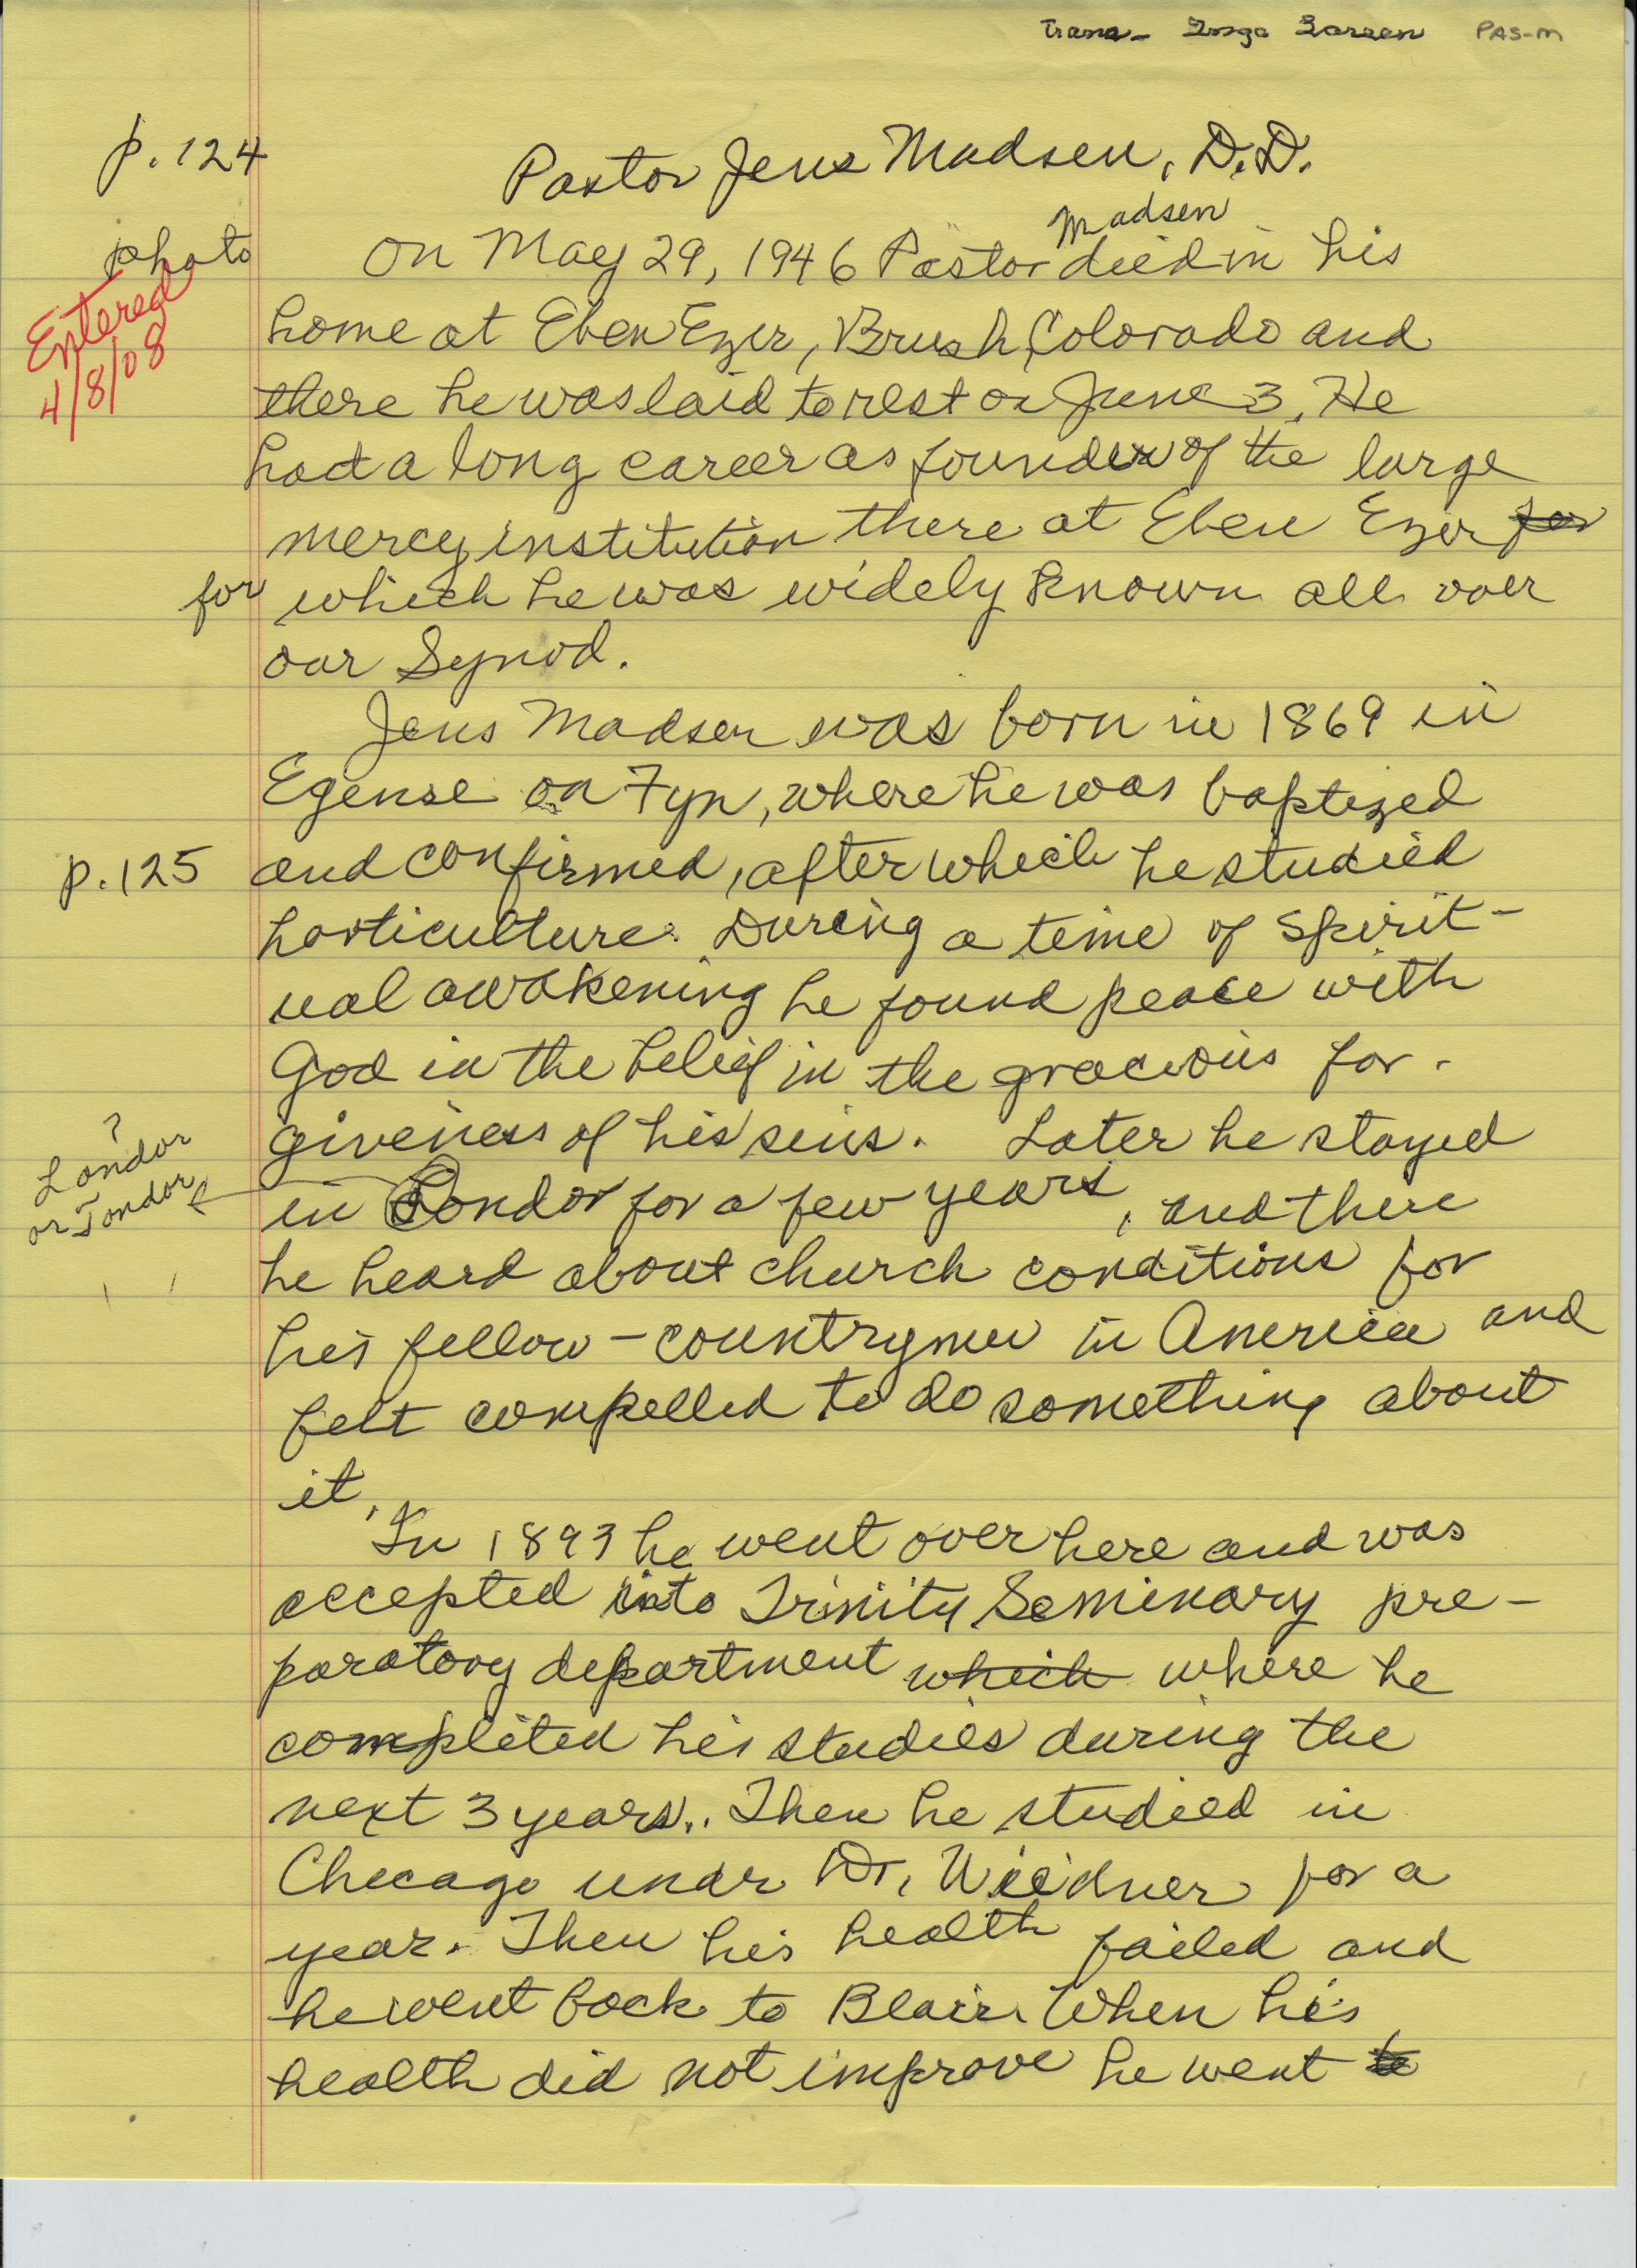 Trans- Inga Larsen PAS-M
p. 124
Pastor Jens Madsen, D.D.
photo
Entered
4/8/08
Madsen
On May 29, 1946 Pastor died in his
home at Eben Ezer, Brush, Colorado and
there he was laid to rest on June 3. He
had a long career as founder of the large
mercy institution there at Eben Ezer for
for which he was widely known all over
our Synod.
Jens Madsen was born in 1869 in
Egense on Fyn, where he was baptized
p. 125 and confirmed, after which he studied
horticulture. During a time of spirit-
ual awakening he found peace with
God in the belief in the gracious for-
giveness of his sins. Later he stayed
?
Londor
or Tondor
in Londor for a few years, and there
he heard about church conditions for
his fellow-countrymen in America and
felt compelled to do something about
it.
In 1893 he went over here and was
accepted into Trinity Seminary pre-
paratory department which where he
completed his studies during the
next 3 years. Then he studied in
Chicago under Dr. Weidner for a
year. Then his health failed and
he went back to Blair. When his
health did not improve he went to